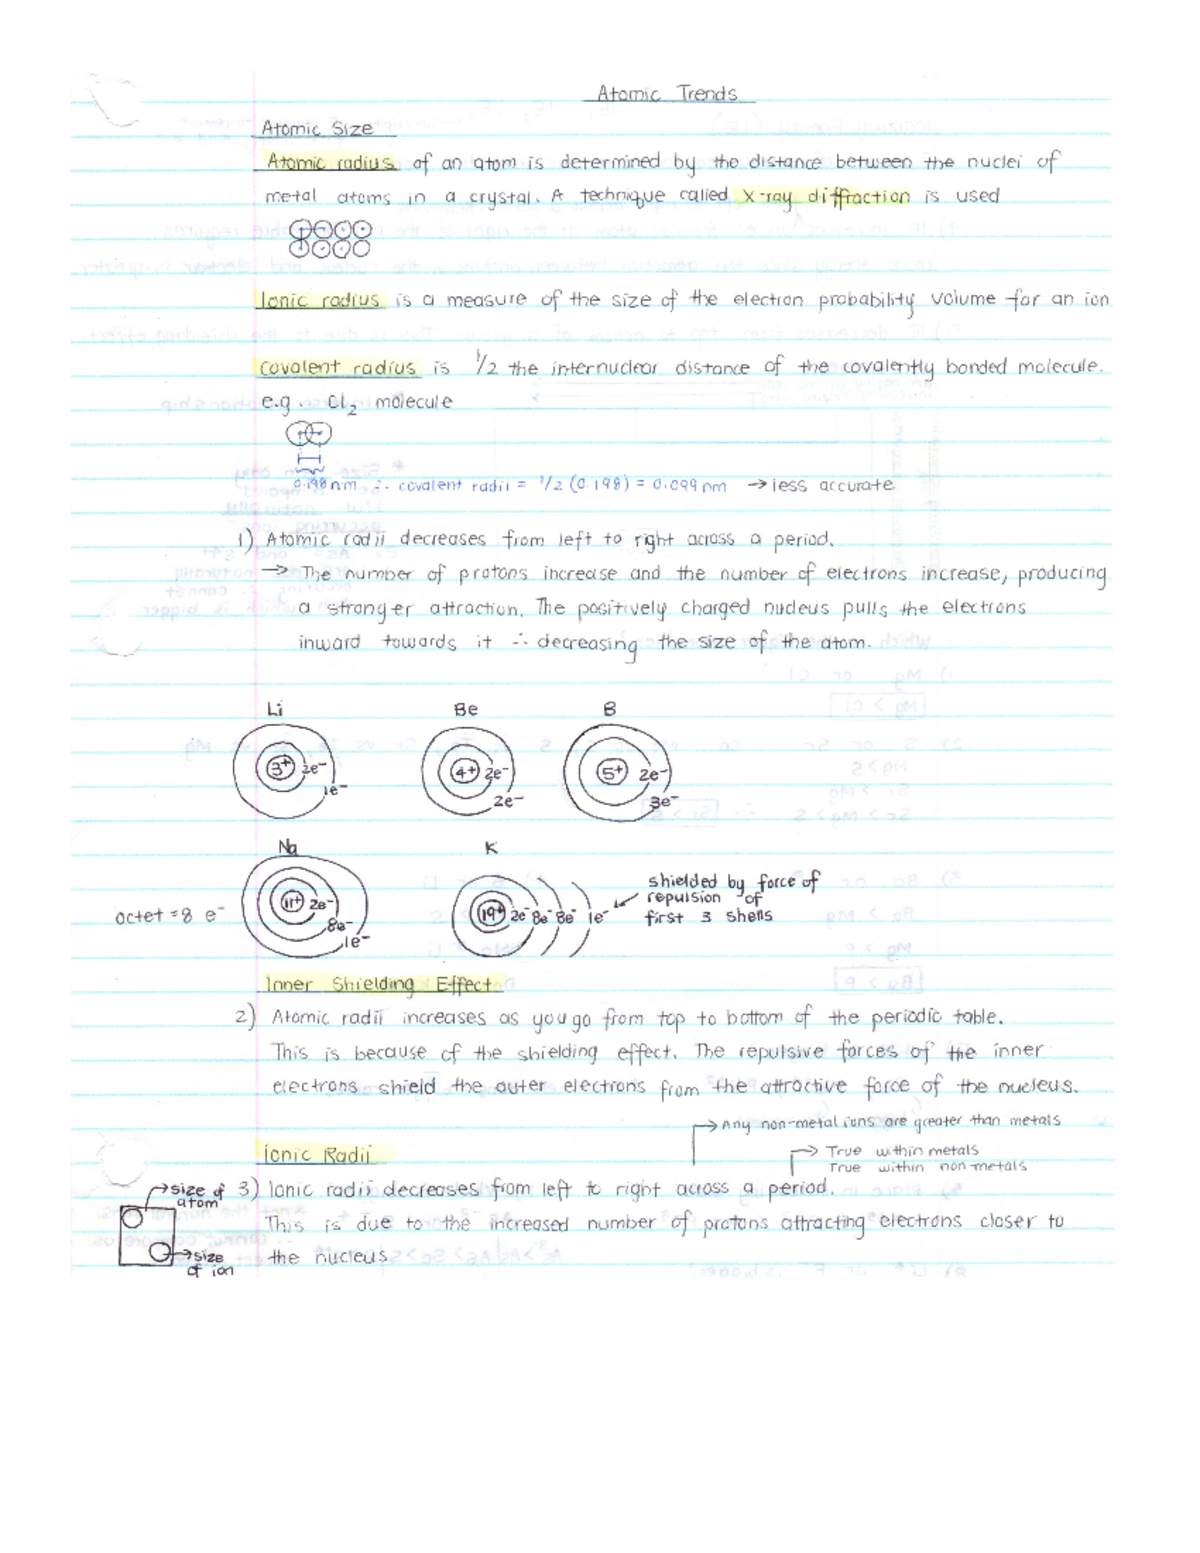 Atomic Trends
Atomic Size
Atomic radius of an atom is determined by the distance between the nuclei of
metal atoms in a crystal. A technique called X-ray diffraction is used
Ionic radius is a measure of the size of the electron probability volume for an ion
Covalent radius is 1/2 the internuclear distance of the covalently bonded molecule.
e.g. Cl2 molecule
0.198nm ∴ covalent radii = 1/2 (0.198) = 0.099nm → less accurate
1) Atomic radii decreases from left to right across a period.
→ The number of protons increase and the number of electrons increase, producing
a stronger attraction. The positively charged nucleus pulls the electrons
inward towards it ∴ decreasing the size of the atom.
Li Be B
3+ 2e- 1e-
4+ 2e- 2e-
5+ 2e- 3e-
Na K
octet = 8 e-
11+ 2e- 8e- 1e-
19+ 2e- 8e- 8e- 1e-
shielded by force of
repulsion of
first 3 shells
Inner Shielding Effect
2) Atomic radii increases as you go from top to bottom of the periodic table.
This is because of the shielding effect. The repulsive forces of the inner
electrons shield the outer electrons from the attractive force of the nucleus.
→ Any non-metal ions are greater than metals
Ionic Radii
→ True within metals
True within non-metals
3) Ionic radii decreases from left to right across a period.
This is due to the increased number of protons attracting electrons closer to
the nucleus
→ size of
atom
→ size
of ion